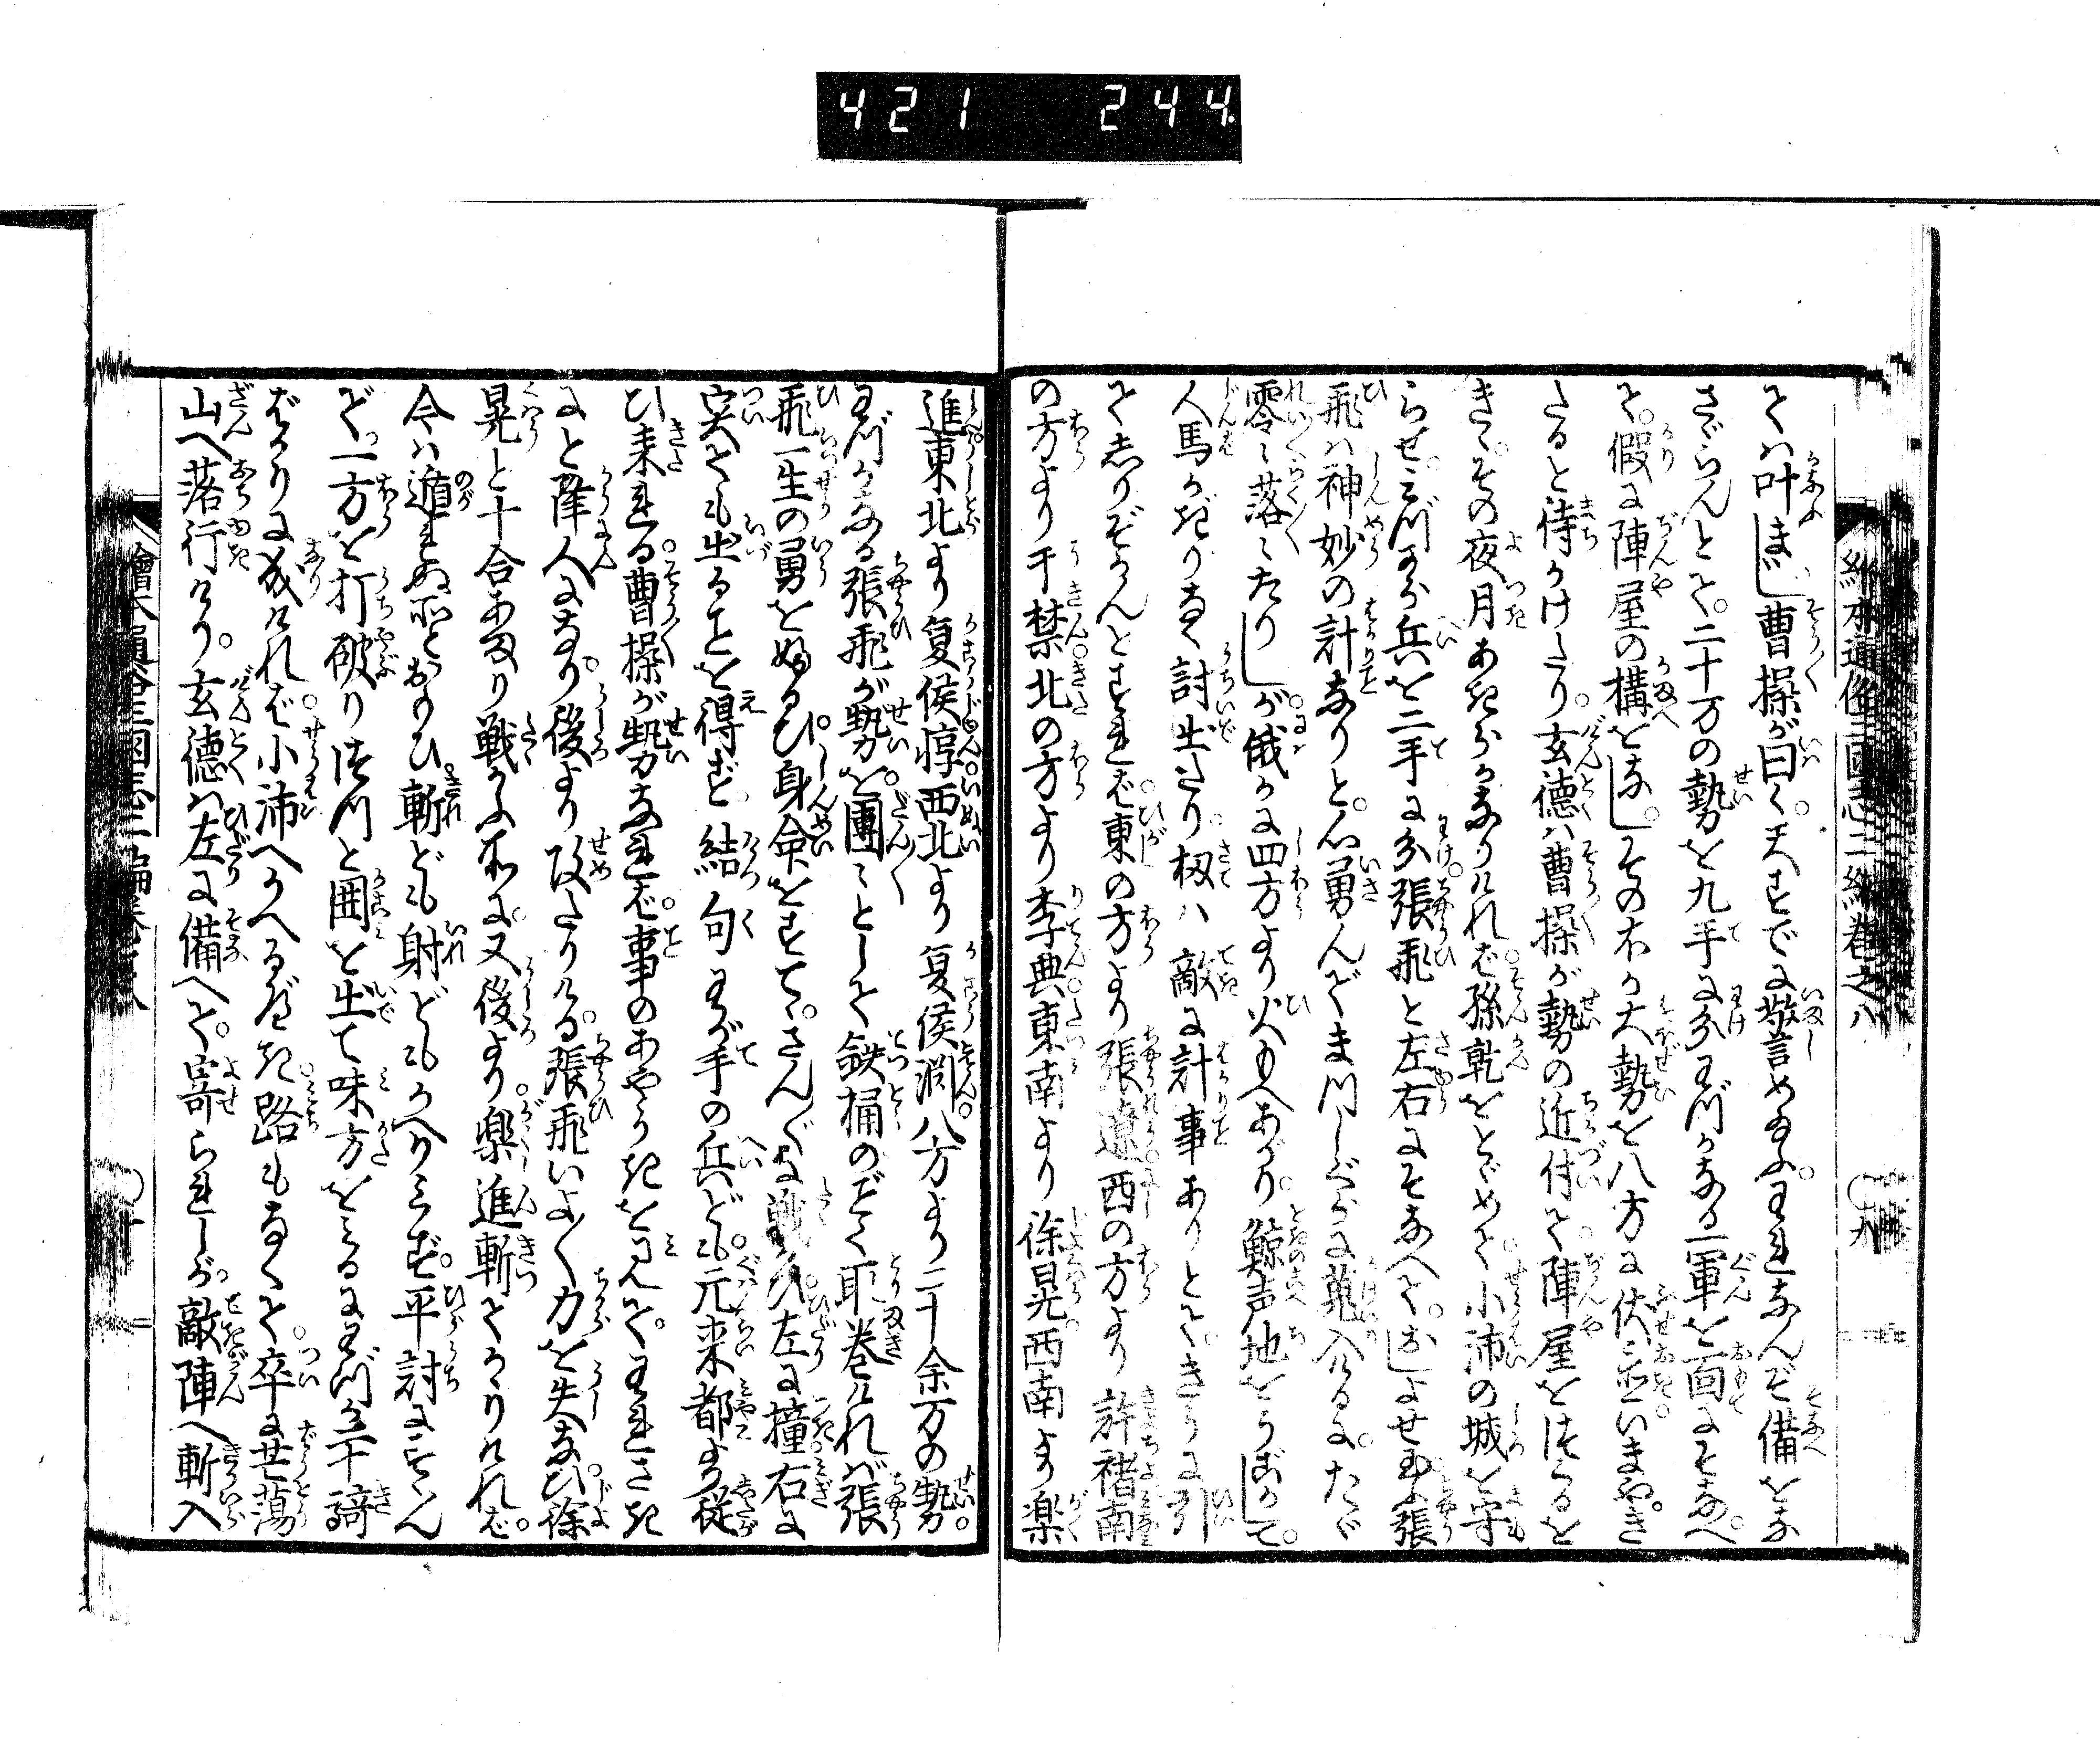 421 244
ては叶まじ曹操が曰く。天すでに警め給ふ。われなんぞ備をな
さゞらんとて。二十万の勢を九手に分わづかなる一軍を面にそなへ
て。假に陣屋の構をなし。その外の大勢を八方に伏置いまやき
たると待かけたり。玄徳は曹操が勢の近付て陣屋をはるを
きゝその夜月あきらかなりければ孫乾をとゞめて小沛の城を守
らせ。わづか兵を二手に分張飛と左右にそなへて。おしよせ給ふ張
飛は神妙の計なりと。心勇んでまつしぐらに蒐入けるに。たゞ
零〻落〻たりしが俄かに四方より火もへあがり。鯨声地をうごかして。
人馬かぎりなく討出たり扨は敵に計事ありとて。きうに引
てしりぞかんとすれば東の方より張遼西の方より許褚南
の方より于禁北の方より李典東南より徐晃西南より楽
進東北より夏侯惇西北より夏侯淵八方より二十余万の勢
わづかなる張飛が勢を。團〻として鉄桶のごとく取巻ければ張
飛一生の勇をふるひ身命をすて。さん〴〵に戦ひ左に撞右に
突ども出ることを得ず結句わが手の兵ども。元来都より従
ひ来れる曹操が勢なれば。事のあやうきを見て。われさき
にと降人になり後より攻たりける。張飛いよ〳〵力を失なひ徐
晃と十合あまり戦かふ所に又後より。楽進斬てかゝりければ。
今は遁れぬ所とおもひ斬ども射どもかへりみず。平討にすゝん
で一方を打破りはつと囲を出て味方をみるにわづか二三十騎
ばかりに成ければ小沛へかへるべき路もなくて。卒に芒蕩
山へ落行けり。玄徳は左に備へて。寄られしが。敵陣へ斬入